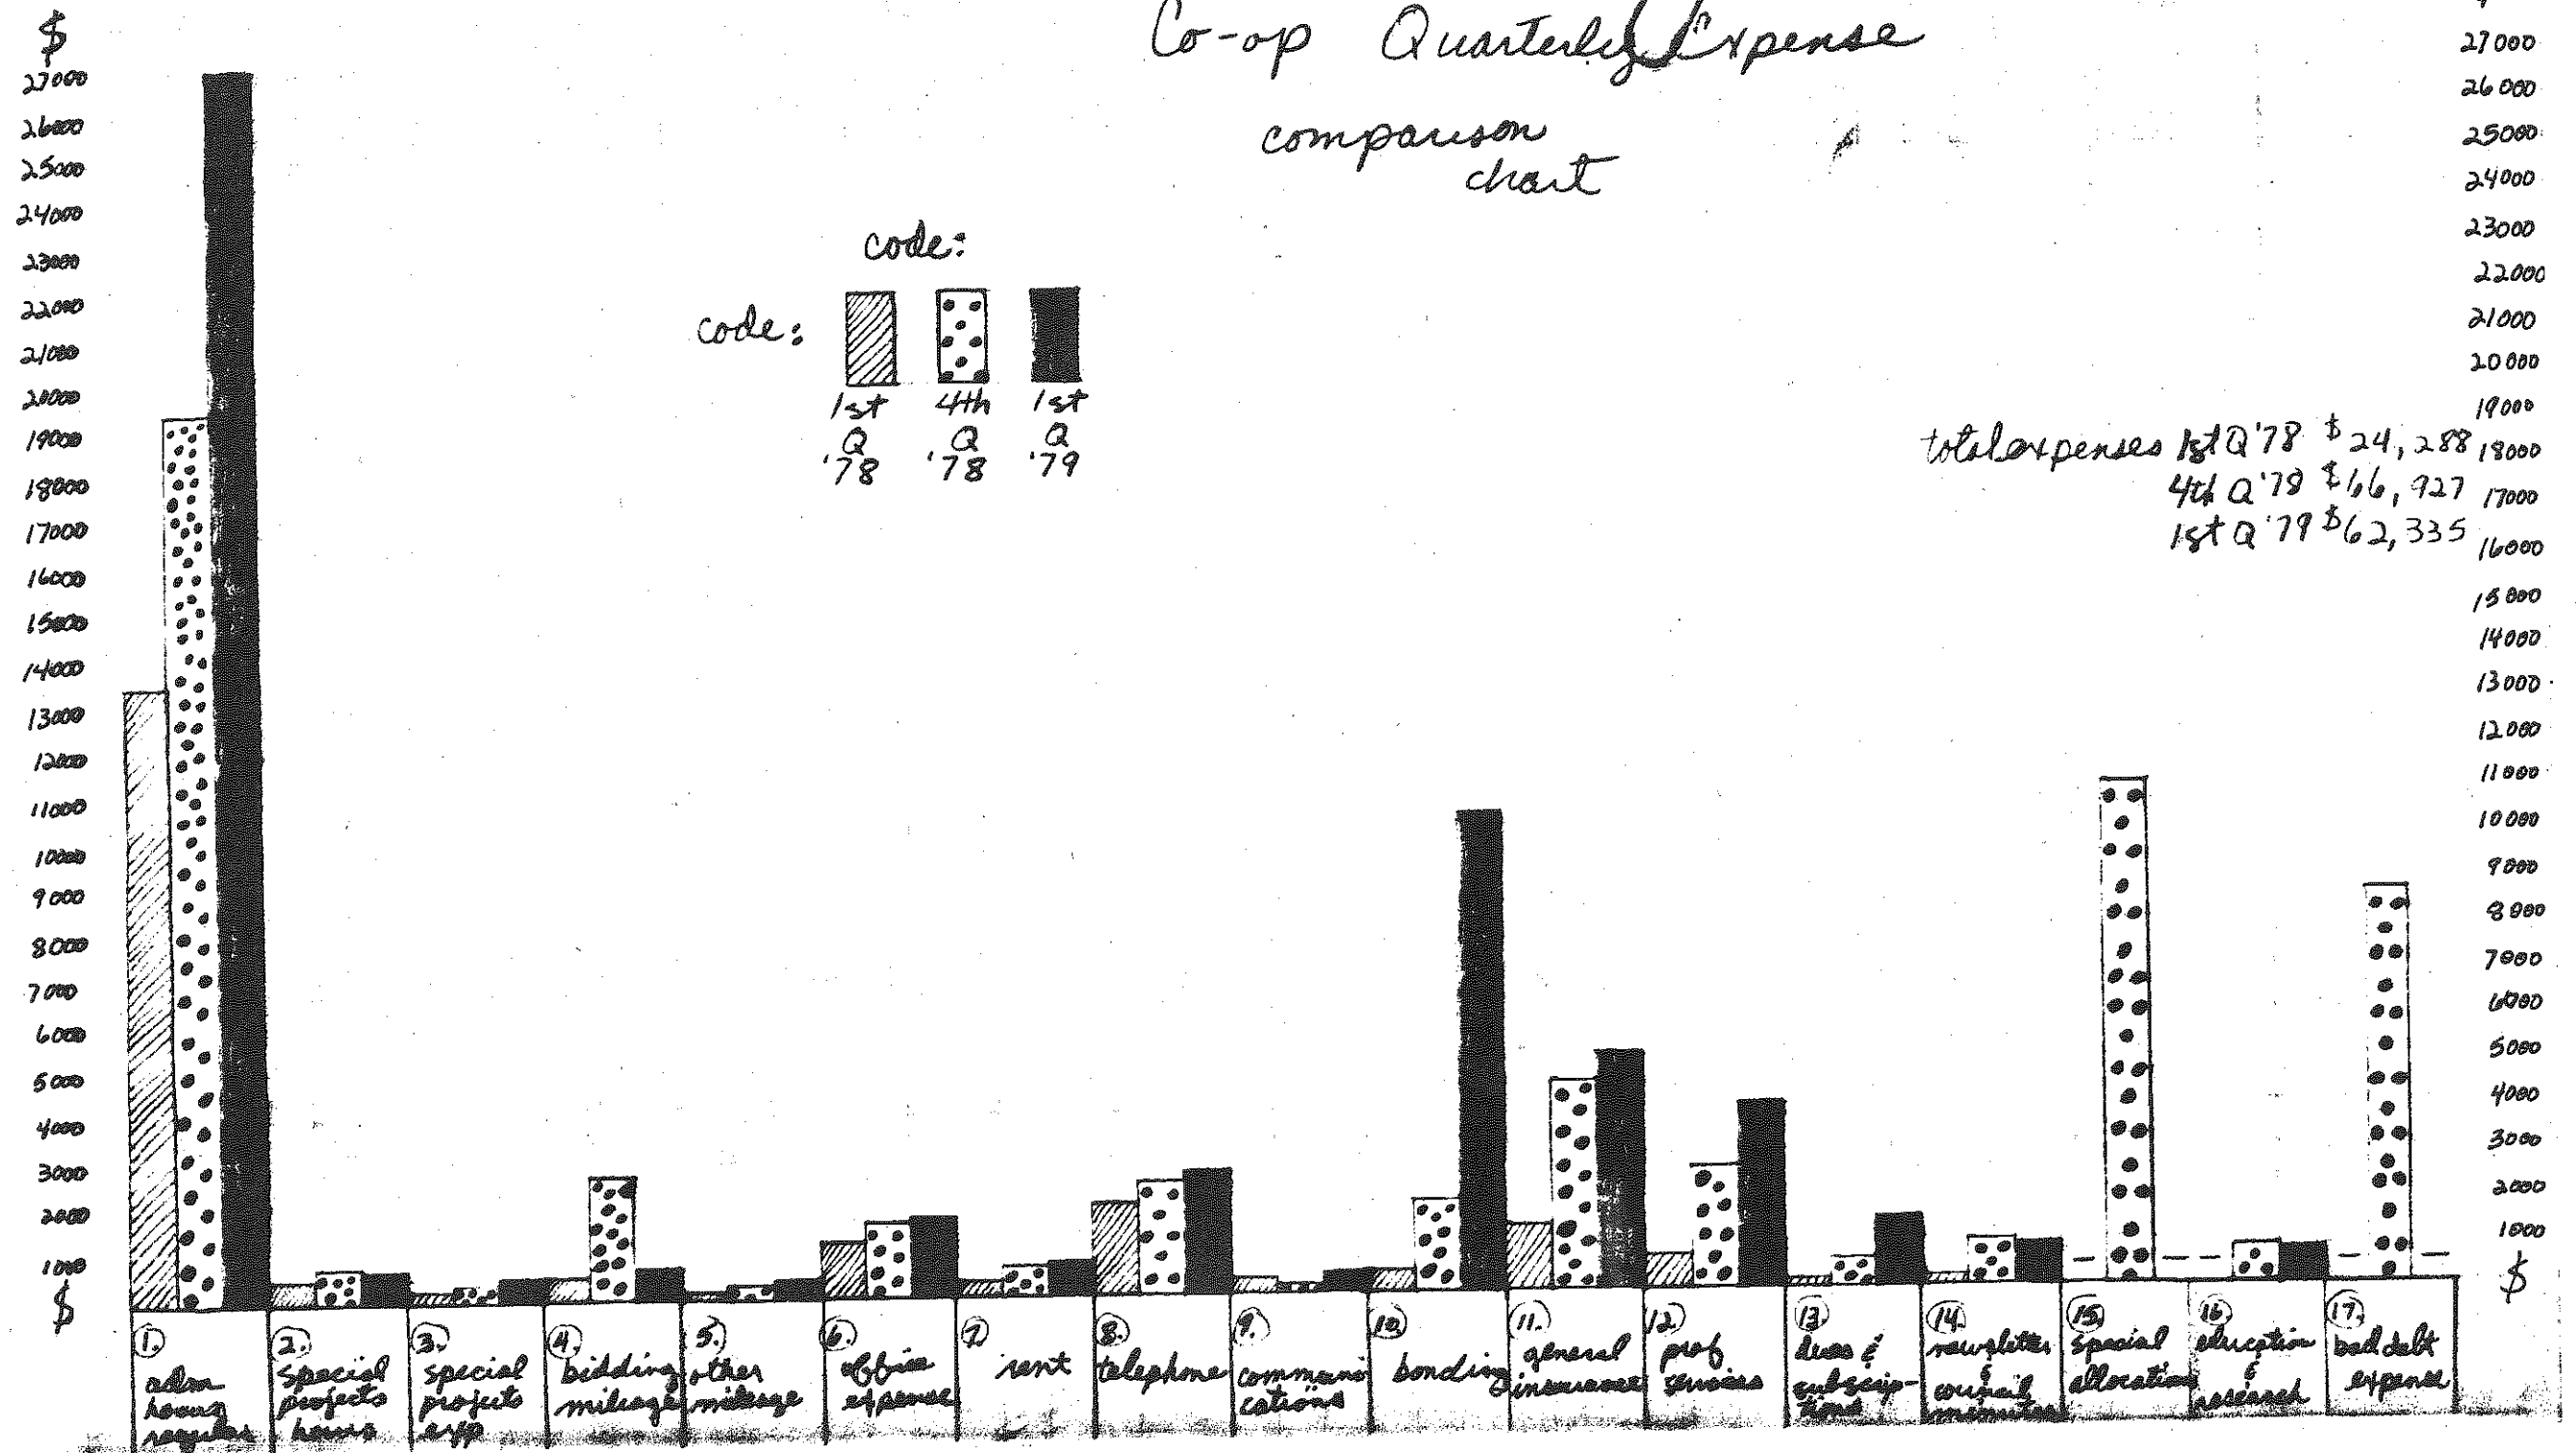 Co-op Quarterly Expense
comparison
chart
$
27000
26000
25000
24000
23000
22000
21000
20000
19000
18000
17000
16000
15000
14000
13000
12000
11000
10000
9000
8000
7000
6000
5000
4000
3000
2000
1000
$
code:
code:
1st 4th 1st
Q Q Q
'78 '78 '79
total expenses 1st Q '78 $24,288
4th Q '78 $66,927
1st Q '79 $62,335
27000
26000
25000
24000
23000
22000
21000
20000
19000
18000
17000
16000
15000
14000
13000
12000
11000
10000
9000
8000
7000
6000
5000
4000
3000
2000
1000
$
1.
adm
hours
regular
2.
special
projects
hours
3.
special
projects
exp
4.
bidding
mileage
5.
other
mileage
6.
office
expense
7.
rent
8.
telephone
9.
communi
cations
10.
bonding
11.
general
insurance
12.
prof
services
13.
dues &
subscrip-
tions
14.
newsletter
&
council
minutes
15.
special
allocations
16.
education
&
research
17.
bad debt
expense